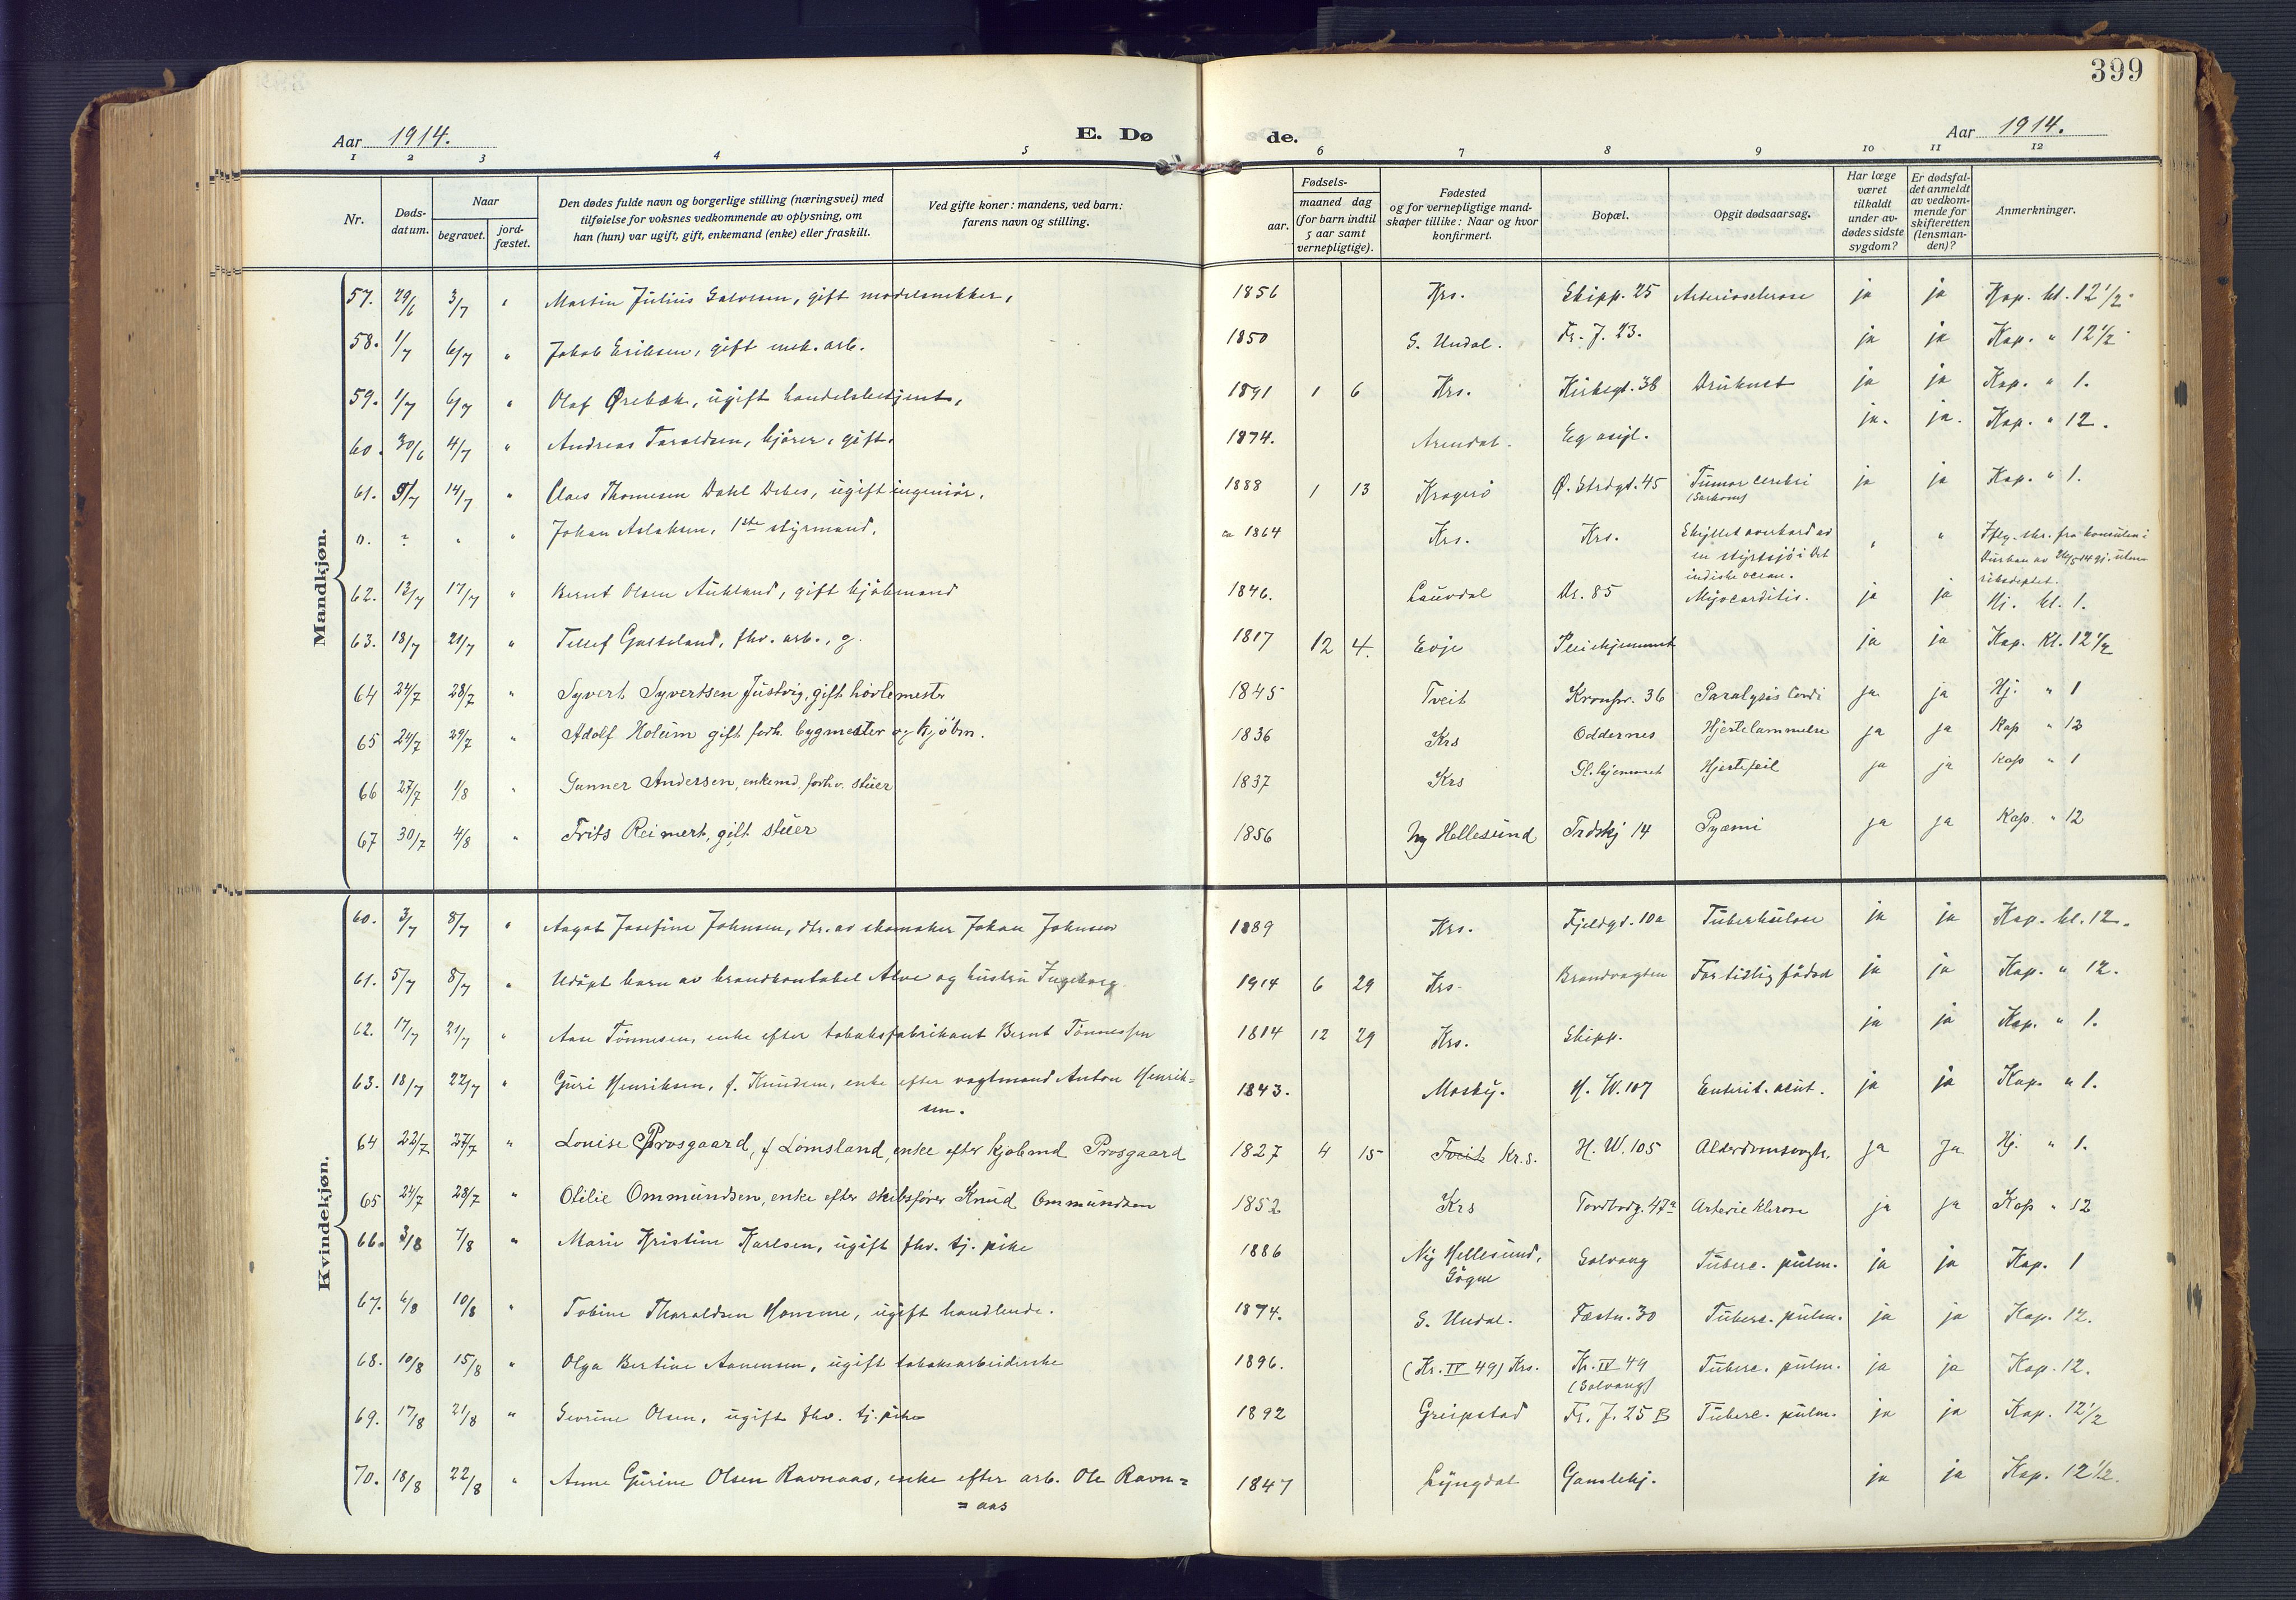 399
Aar 1914. E. Dø de. Aar 1914.
1 2 3 4 5 6 7 8 9 10 11 12
Nr. Døds-datum. Naar begravet. jord-fæstet. Den dødes fulde navn og borgerlige stilling (næringsvei) med tilføielse for voksnes vedkommende av oplysning, om han (hun) var ugift, gift, enkemand (enke) eller fraskilt. Ved gifte koner: mandens, ved barn: farens navn og stilling. Fødsels- aar. maaned dag (for barn indtil 5 aar samt vernepligtige). Fødested og for vernepligtige mandskaper tillike: Naar og hvor konfirmert. Bopæl. Opgit dødsaarsag. Har læge været tilkaldt under avdødes sidste sygdom? Er dødsfaldet anmeldt av vedkommende for skifteretten (lensmanden)? Anmerkninger.
Mandkjøn.
57. 29/6 3/7 " Martin Julius Salvesen, gift modelsnekker, 1856 Krs. Skipp. 25 Arteriosclerose ja ja Kap. kl. 12 1/2
58. 1/7 6/7 " Jakob Eriksen, gift mek. arb. 1850 S. Undal. Fr. J. 23. ja ja Kap. " 12 1/2
59. 1/7 6/7 " Olaf Ørebæk, ugift handelsbetjent, 1891 1 6 Krs. Kirkegt. 38 Druknet ja ja Kap. " 1.
60. 30/6 4/7 " Andreas Taraldsen, kjører, gift. 1874. Arendal. Eg asyl. ja. ja. Kap. " 12.
61. 9/7 14/7 " Claes Thomesen Dahl Debes, ugift ingeniør. 1888 1 13 Kragerö Ø. Strdgt. 45 Tumor cerebri (Sarkom) ja ja Kap. " 1.
0. ? " " Johan Aslaksen, 1ste styrmand. ca 1864 Krs. Krs. Skyllet overbord av en styrtsjö i Det indiske ocean. " " Iflg. skr. fra konsulen i Durban av 26/5 14 gj. utenriksdeptet.
62. 12/7 17/7 " Bernt Olsen Aukland, gift kjöbmand 1846. Lauvdal Dr. 85 Myocarditis. ja ja Hj. kl. 1.
63. 18/7 21/7 " Tellef Gaseland, fhv. arb., g. 1817 12 4. Evje Pleiehjemmet ja ja Kap. Kl. 12 1/2
64 24/7 28/7 " Syvert Syvertsen Justvig, gift hövlemester 1845 Tveit Kronpr. 36 Paralysis Cordi ja ja Hj. " 1
65 24/7 29/7 " Adolf Holum gift forh. bygmester og kjöbm. 1836 Krs Oddernes Hjertelammelse ja ja Kap " 12
66 27/7 1/8 " Gunner Andersen, enkemd. forhv. stuer 1837 Krs Gl.hjemmet Hjertefeil ja ja Kap " 1
67 30/7 4/8 " Frits Reimert, gift stuer 1856 Ny Hellesund Trdskj 14 Pyæmi ja ja Kap. " 12
Kvindekjøn.
60. 3/7 8/7 " Aagot Josefine Johnsen, dtr. av skomaker Johan Johnsen 1889 Krs. Fjeldgt. 10a Tuberkulose ja ja Kap. kl. 12.
61. 5/7 8/7 " Udöpt barn av brandkontabel Alve og hustru Ingeborg 1914 6 29 Krs. Brandvagten For tidlig födsel ja ja Kap. " 12.
62. 17/7 21/7 " Aase Tönnesen, enke efter tobaksfabrikant Bernt Tönnessen 1814 12 29 Krs. Skipp. ja ja Kap. " 1.
63. 18/7 22/7 " Guri Henriksen, f. Knudsen, enke efter vagtmand Anton Henrik=
sen. 1843. Mosby. H. W. 107 Enterit. acut. ja ja Kap. " 1.
64 22/7 27/7 " Louise Prosgaard, f Lomsland, enke efter kjöbmd Prosgaard 1827 4 15 Tveit Kr.s. H. W. 105 Alderdomssvagh. ja ja Hj. " 1.
65 24/7 28/7 " Olilie Ommundsen, enke efter skibsförer Knud Ommundsen 1852 Krs Tordbodg. 47a Arterieklerose ja ja Kap " 12
66. 3/8 7/8 " Marie Kristine Karlsen, ugift fhv. tj. pike 1886 Ny Hellesund, Sögne Solvang Tuberc. pulm. ja ja Kap. 1
67. 6/8 10/8 " Tobine Tharaldsen Homme, ugift handlende. 1874. S. Undal. Fæstn. 30 Tuberc. pulm. ja ja Kap. 12.
68. 10/8 15/8 " Olga Bertine Aanensen, ugift tobaksarbeiderske 1896. (Kr. IV 49) Krs. Kr. IV 49 (Solvang) Tuberc. pulm. ja ja Kap. 12.
69. 17/8 21/8 " Severine Olsen, ugift fhv. tj. pike 1892 Greipstad Fr. J. 25 B Tuberc. pulm. ja ja Kap. 12 1/2
70. 18/8 22/8 " Anne Gurine Olsen Ravnaas, enke efter arb. Ole Ravn=
= aas 1847 Lyngdal Gamlehj. ja ja Kap. 12 1/2.